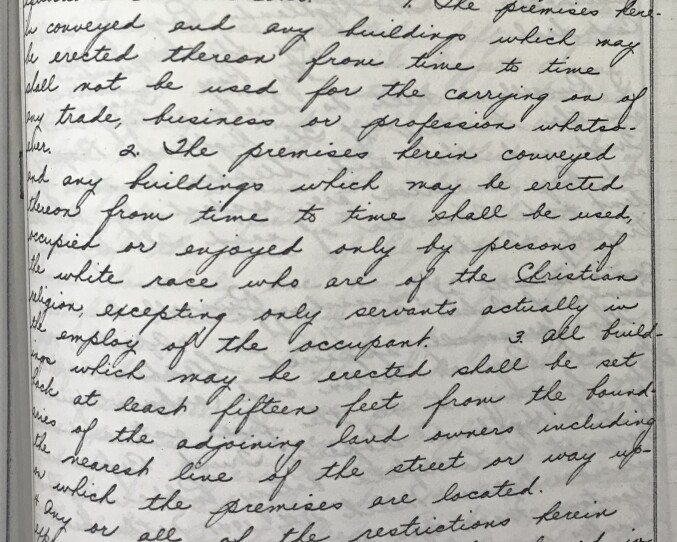 1. The premises here-
in conveyed and any buildings which may
be erected thereon from time to time
shall not be used for the carrying on of
any trade, business or profession whatso-
ever. 2. The premises herein conveyed
and any buildings which may be erected
thereon from time to time shall be used,
occupied or enjoyed only by persons of
the white race who are of the Christian
religion, excepting only servants actually in
the employ of the occupant. 3. All build-
ings which may be erected shall be set
back at least fifteen feet from the bound-
aries of the adjoining land owners including
the nearest line of the street or way up-
on which the premises are located.
4. Any or all of the restrictions herein